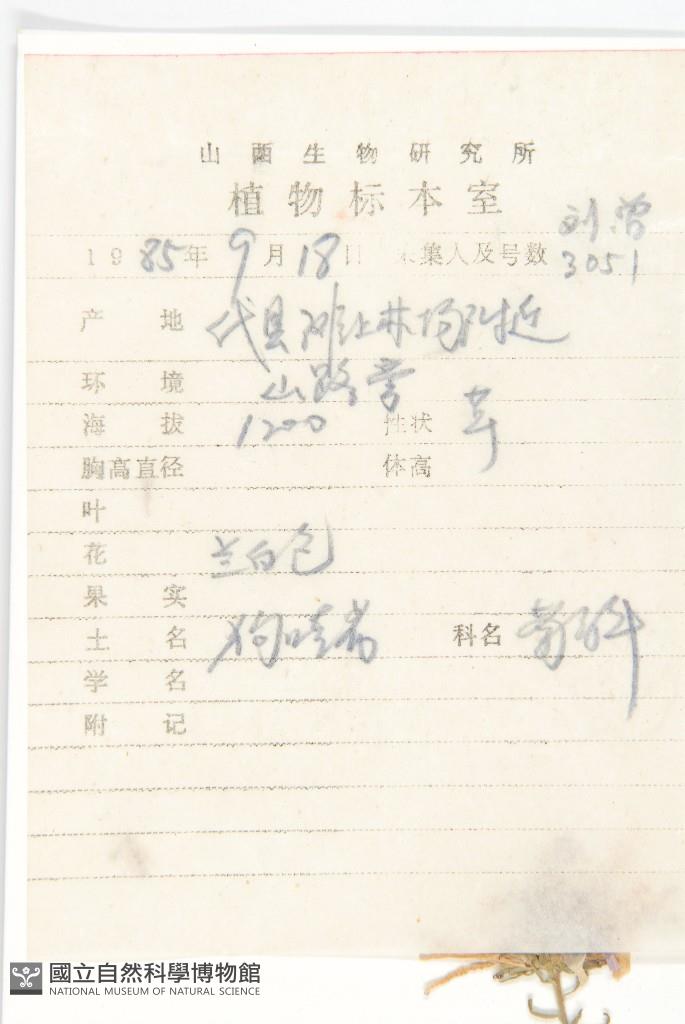 山西生物研究所
植物标本室
1985年9月18日 采集人及号数 刘 3051
产地 代县滩上林场附近
环境 山路旁
海拔 1200 性状 草
胸高直径 体高
叶
花 兰白色
果实
土名 狗哇花 科名 菊科
学名
附记
國立自然科學博物館
NATIONAL MUSEUM OF NATURAL SCIENCE